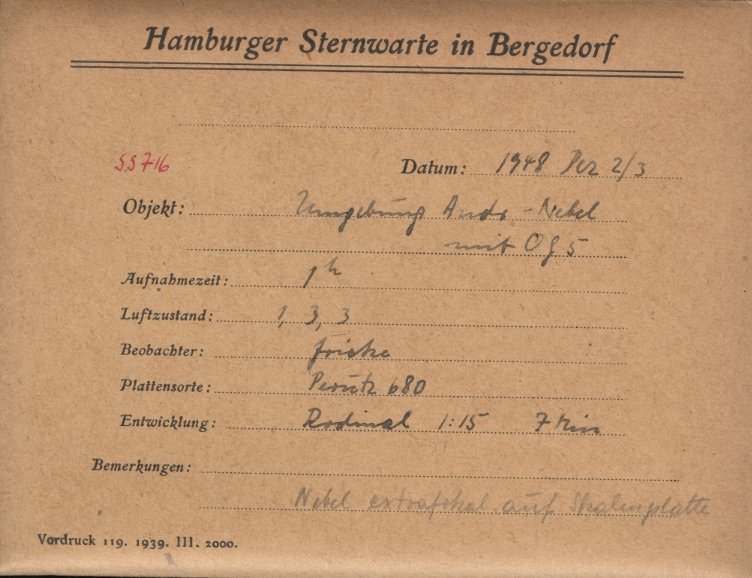 Hamburger Sternwarte in Bergedorf
SS716
Datum: 1948 Dez 2/3
Objekt: Umgebung Andr-Nebel
mit OG5
Aufnahmezeit: 1h
Luftzustand: 1, 3, 3
Beobachter: Fricke
Plattensorte: Perutz 680
Entwicklung: Rodinal 1:15 7 Min
Bemerkungen:
Nebel extrafokal auf Skalenplatte
Vordruck 119. 1939. III. 2000.